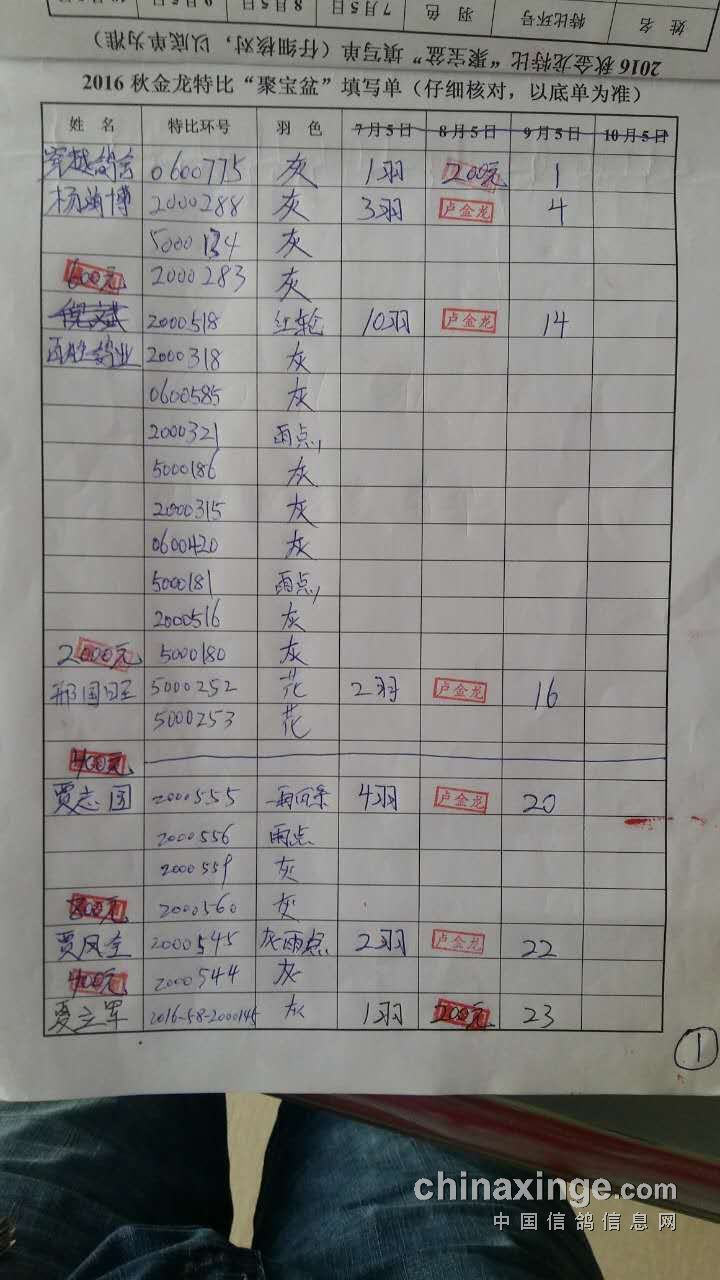 姓 名 特比环号 羽 色 7月5日 8月5日 9月5日
2016 秋金龙特比“聚宝盆”填写单（仔细核对，以底单为准）
2016 秋金龙特比“聚宝盆”填写单（仔细核对，以底单为准）
姓 名 特比环号 羽 色 7月5日 8月5日 9月5日 10月5日
0600775 灰 1羽 200元 1
2000288 灰 3羽 卢金龙 4
灰
600元 2000283 灰
倪文斌 2000518 红轮 10羽 卢金龙 14
2000318 灰
0600585 灰
2000321 雨点
5000186 灰
2000315 灰
0600420 灰
5000181 雨点
2000516 灰
2000元 5000180 灰
邢国旺 5000252 花 2羽 卢金龙 16
5000253 花
400元
贾志国 2000555 4羽 卢金龙 20
2000556 雨点
2000559 灰
800元 2000560 灰
贾凤全 2000545 灰雨点 2羽 卢金龙 22
400元 2000544 灰
夏立军 2016-58-2000145 灰 1羽 200元 23
1
chinaxinge.com
中国信鸽信息网